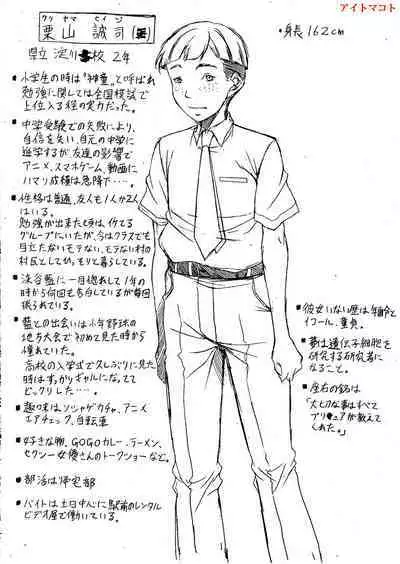 アイトマコト
クリヤマ セイジ
栗山 誠司
県立淀川 校 2年
・身長162cm
■小学生の時は"神童"と呼ばれ
勉強に関しては全国模試で
上位入る程の実力だった。
■中学受験での失敗により、
自信を失い、自元の中学に
進学するが友達の影響で
アニメ、スマホゲーム、動画に
ハマリ成積は急降下‥‥。
■性格は普通、友人も1人か2人
はいる。
勉強が出来た頃は、イケてる
グループにいたが、今はクラスでも
目立たないモテない、モテない村の
村民としてひっそりと暮らしている。
■渋谷藍に一目惚れして1年の
時から何回も告白しているが毎回
振られている。
■藍との出会いは少年野球の
地方大会で初めて見た時から
憧れていた。
高校の入学式で久しぶりに見た
時はすっかりギャルになってて
ビックリした‥‥。
■趣味はソシャゲガチャ、アニメ
エアチェック、自転車
■好きな物、GOGOカレー、ラーメン、
セクシー女優さんのトークショーなど。
■部活は帰宅部
■バイトは土日中心に駅前のレンタル
ビデオ屋で働いている。
■彼女いない歴は年齢と
イコール、童貞。
■夢は遺伝子細胞を
研究する研究者に
なること。
■座右の銘は
「大切な事はすべて
プリ●ュアが教えて
くれた。」